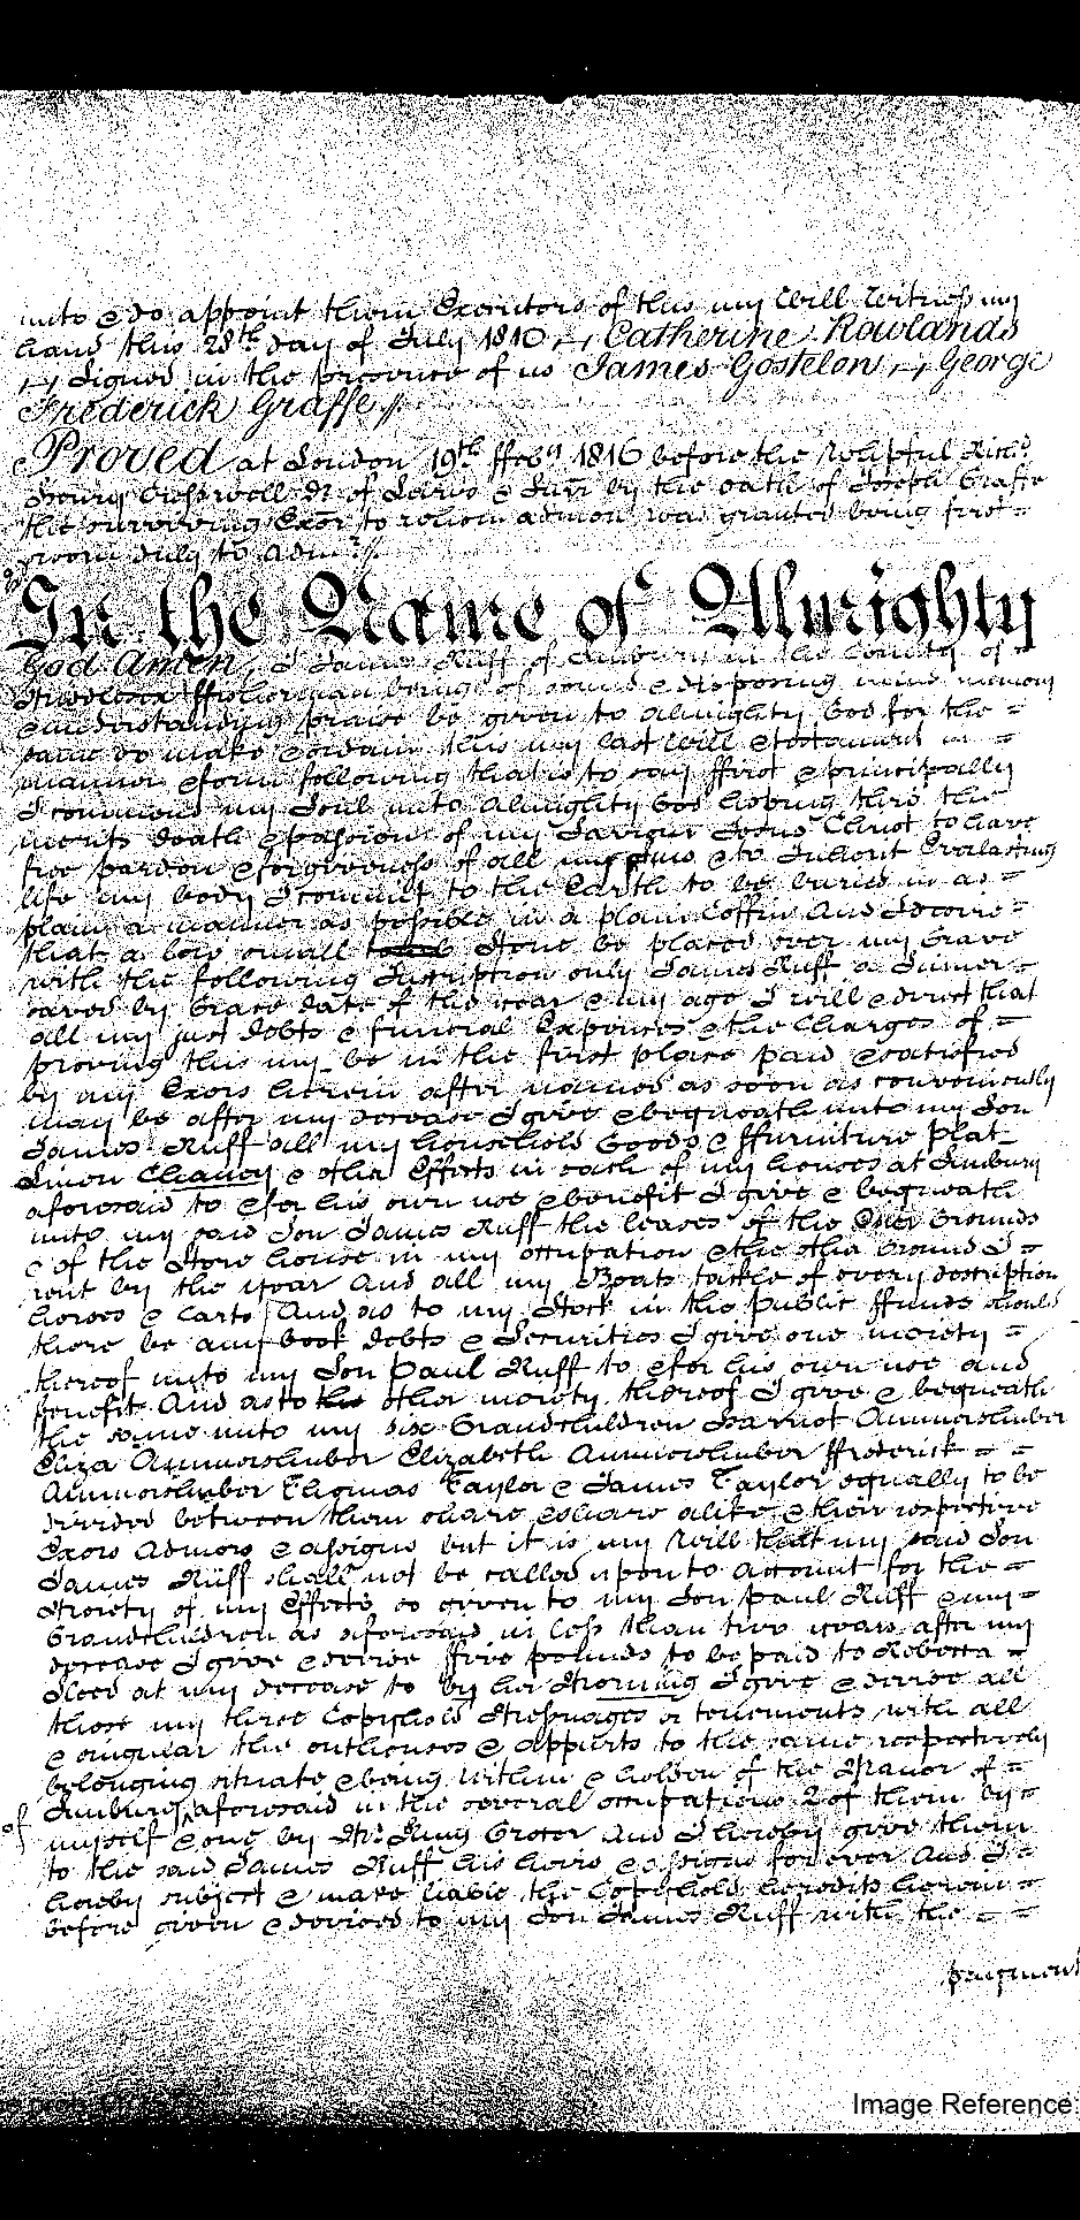 unto & do appoint them Executors of this my Will Witness my
hand this 28th day of July 1810 Catherine Rowlands
Signed in the presence of us James Gostelon George
Frederick Graffe
Proved at London 19th ffeby 1816 before the Worshipful Richd
Henry Cresswell Dr of Laws & Surr by the oath of Joseph Graffe
the surviving Exor to whom admon was granted being first
sworn duly to adm
In the Name of Almighty
God Amen I James Ruff of in the County of
Middlesex ffisherman being of sound & disposing mind memory
& understanding praise be given to almighty God for the
same do make & ordain this my last Will & testament in
manner & form following that is to say ffirst & principally
I commend my Soul unto Almighty God hoping thro the
merits death & passion of my Saviour Jesus Christ to have
free pardon & forgiveness of all my sins & to Inherit Everlasting
life my body I commit to the Earth to be buried in as
plain a manner as possible in a plain Coffin And I desire
that a low small Stone be placed over my Grave
with the following Inscription only James Ruff a Sinner
saved by Grace date of the year & my age I will & direct that
all my just debts & funeral Expences & the Charges of
proving this my be in the first place paid & satisfied
by my Exors herein after named as soon as conveniently
may be after my decease I give & bequeath unto my Son
James Ruff all my household Goods & ffurniture plat
Linen Chaney & other Effects in each of my houses at Sunbury
aforesaid to & for his own use & benefit I give & bequeath
unto my said Son James Ruff the leases of the Osier Grounds
& of the Store house in my occupation & the other Ground I
rent by the year And all my Boats tackle of every description
horses & Carts And as to my Stock in the public ffunds should
there be any book debts & Securities I give one moiety
thereof unto my Son Paul Ruff to & for his own use and
benefit And as to the other moiety thereof I give & bequeath
the same unto my six Grandchildren Harriot Ammerslauber
Eliza Ammerslauber Elizabeth Ammerslauber ffrederick
Ammerslauber Thomas Taylor & James Taylor equally to be
divided between them share & share alike & their respective
Exors Admors & assigns but it is my Will that my said Son
James Ruff shall not be called upon to account for the
Moiety of my Effects so given to my Son Paul Ruff & my
Grandchildren as aforesaid in less than two years after my
decease I give & devise ffive pounds to be paid to Rebecca
at my decease to by her Morning I give & devise all
those my three Copyhold Messuages or tenements with all
& singular the outhouses & Appurts to the same respectively
belonging situate & being within & holden of the Manor of
Sunbury aforesaid in the several occupations 2 of them by
of
myself & one by Mr Grover And I hereby give them
to the said James Ruff his heirs & assigns for ever And I
hereby subject & make liable the Copyhold heredits herein
before given & devised to my Son James Ruff with the
payment
Image Reference: